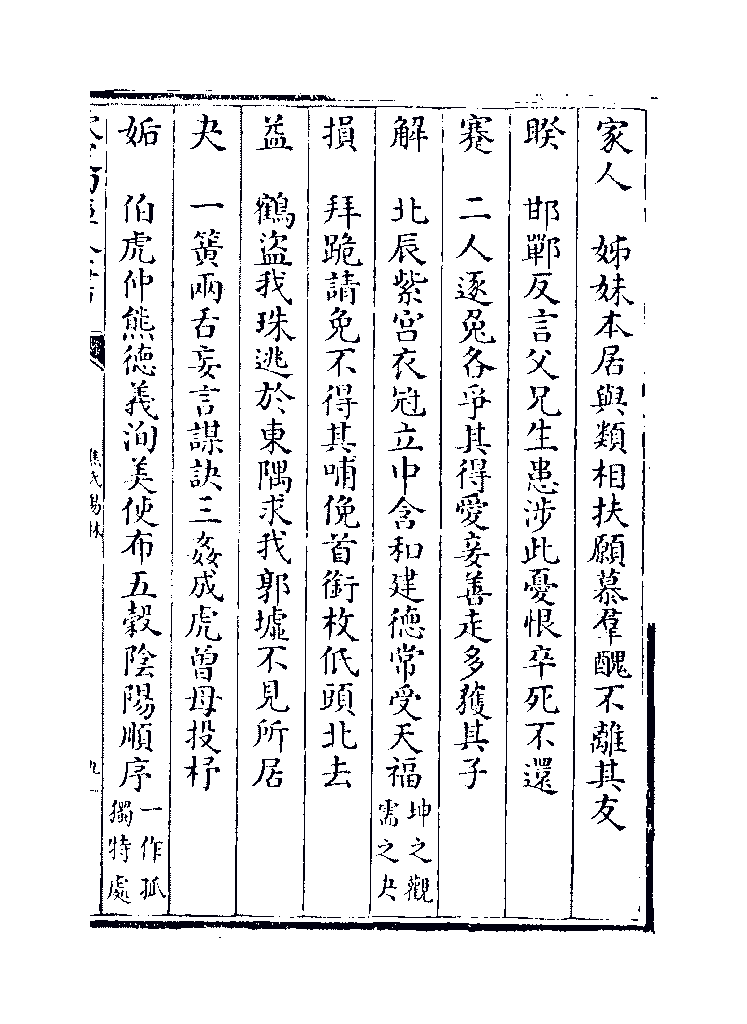 家人　姊妹本居與類相扶願慕羣醜不離其友
睽　邯鄲反言父兄生患涉此憂恨卒死不還
蹇　二人逐兔各爭其得愛妾善走多獲其子
解　北辰紫宮衣冠立中含和建德常受天福坤之觀需之夬
損　拜跪請免不得其哺俛首銜枚低頭北去
益　鶴盜我珠逃於東隅求我郭墟不見所居
夬　一簧兩舌妄言謀訣三姦成虎曾母投杼
姤　伯虎仲熊德義洵美使布五穀陰陽順序一作孤獨特處
焦氏易林
九